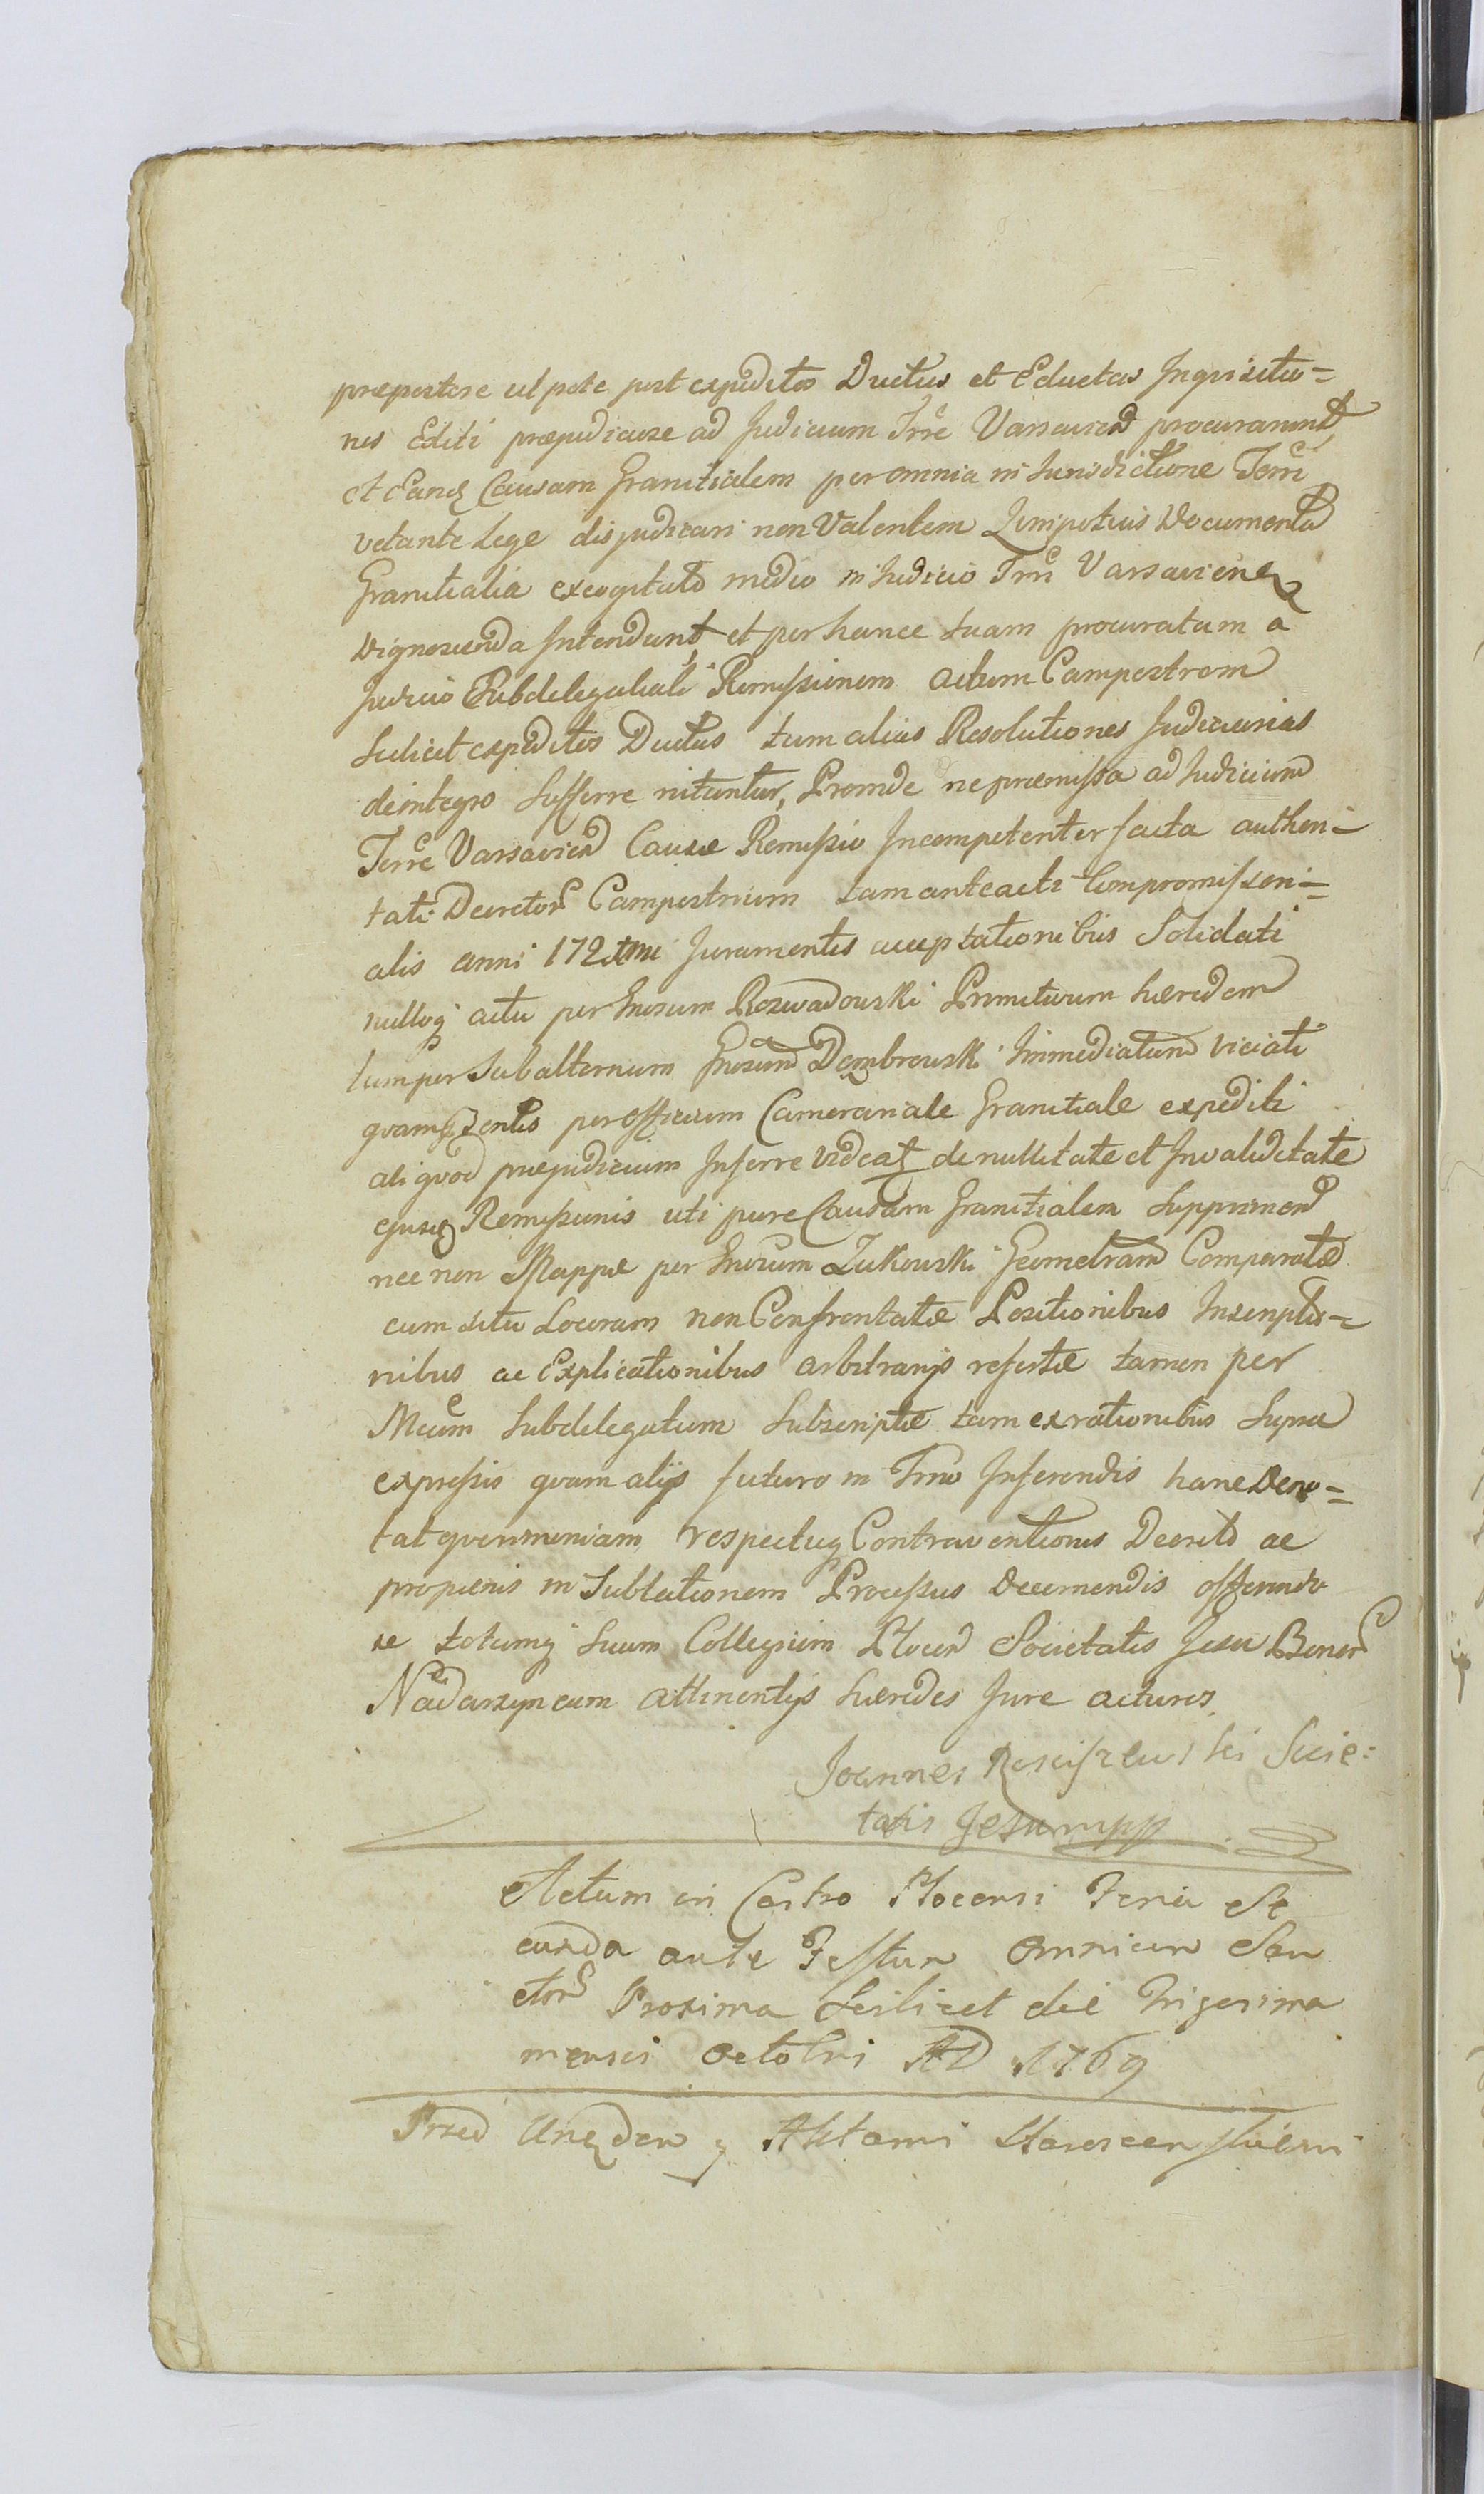 præpostere utpote post expeditos Ductus et Eductas Inquisitio=
nes Editi præjudiciose ad Judicium Trre Varsavien procurarunt
et Eandq Causam Granitialem per omnia in Jurisdictione Terri
vetante Lege disjudicari non Valentem Quipotius Documenta
Granitialia excogitato medio in Judicio Trri Varsavienq
Dignoscenda Intendunt, et per hance suam procuratam a
Judicio Subdelegatiali Remissionem actum Campestrem
Scilicet expeditos Ductus tum alias Resolutiones Judiciarias
deintegro Sufferre nituntur, Proinde ne præmissa ad Judicium
Terre Varsavien Causæ Remissio Incompetenter facta authen=
tati Decretor Campestrium tam anteacti Compromisseri=
alis anni 172 Juramentis acceptationibus Solidati
nulloq actu per Gnosum Rozwadowski Primitivum hæredem
tum per Subalternum Gnosum Dąmbrowski Immediatum viciati
quamq per Officium Camerariale Granitiale expediti
aliquod præjudicium Inferre videat de nullitate et Invaliditate
ejusq Remissionis uti pure Causam Granitialem Supprimen
nec non Mappæ per Gnosum Zukowski Geometram Comparatæ
cum situ Locorum non Confrontatæ Positionibus Inscriptio=
nibus ac Explicationibus arbitrarijs refertæ tamen per
Meum Subdelegatum Subscriptæ tam ex rationibus Supra
expressis quam alijs futuro in Trno Inferendis hane Deno=
tat querimoniam respectuq Contraventionis Decreto ac
propænis in Sublationem Processus Decernendis offerendo
se totumq Suum Collegium Plocen Societatis Jesu Bonor
Nadarzyn cum attinentijs hæredes Jure acturos.
Joannes Societatis Socie=
tatis Jesu mpp
Actum in Castro Plocensi Feria Se
cunda ante Festum Omnium San
ctor Proxima Scilicet die Trigesima
mensis Octobri AD 1769
Przed Urzędem y Aktami Staroscenskiemi